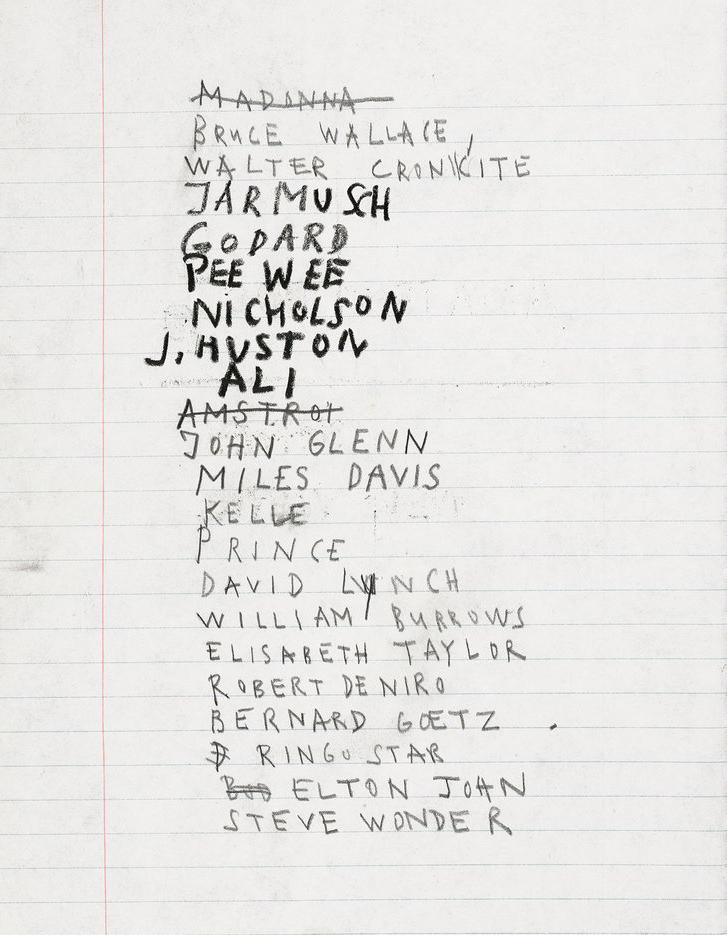 MADONNA
BRUCE WALLACE,
WALTER CRONKITE
JARMUSCH
GODARD
PEE WEE
NICHOLSON
J. HUSTON
ALI
AMSTROI
JOHN GLENN
MILES DAVIS
KELLE
PRINCE
DAVID LYNCH
WILLIAM BURROWS
ELISABETH TAYLOR
ROBERT DE NIRO
BERNARD GOETZ .
RINGO STAR
BOB ELTON JOHN
STEVE WONDER